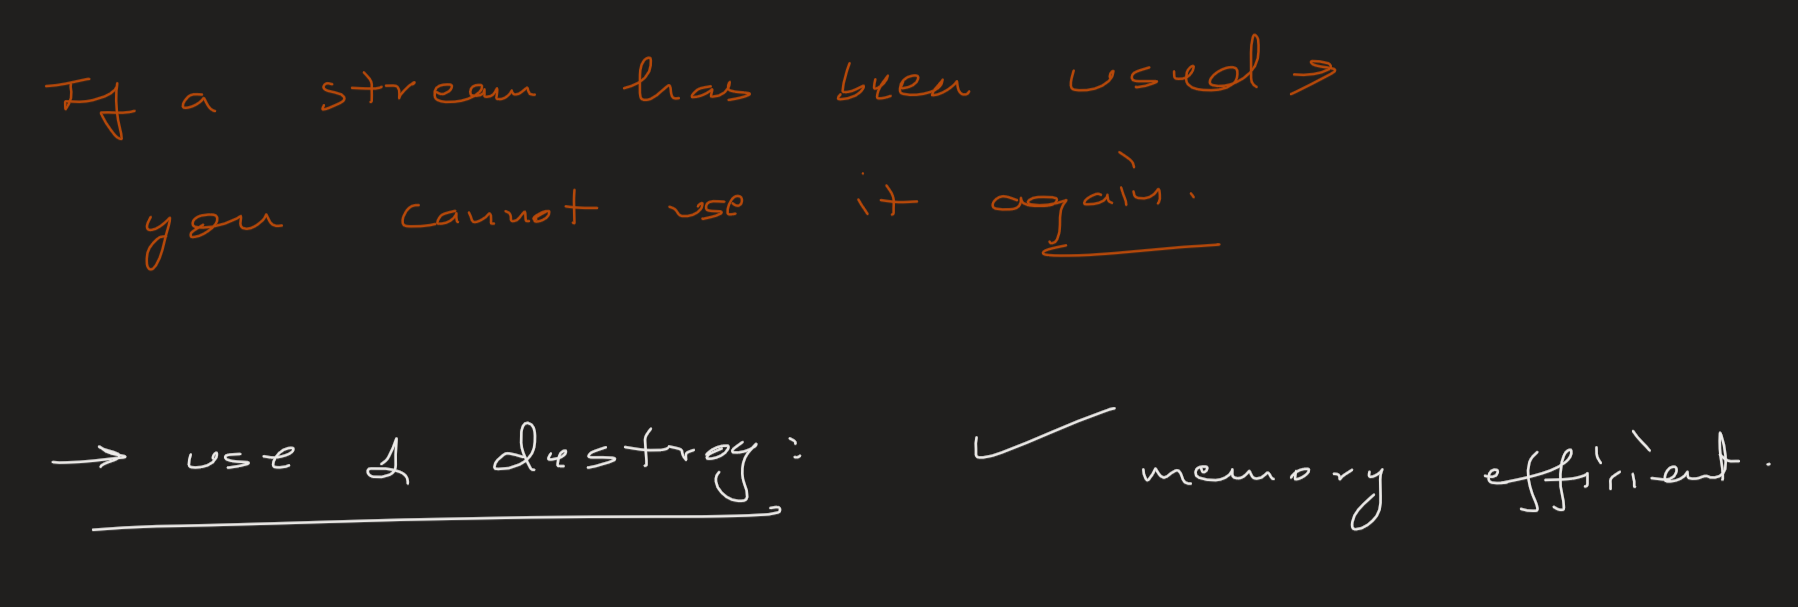 If a stream has been used →
you cannot use it again.
→ use & destroy: ✓ memory efficient.